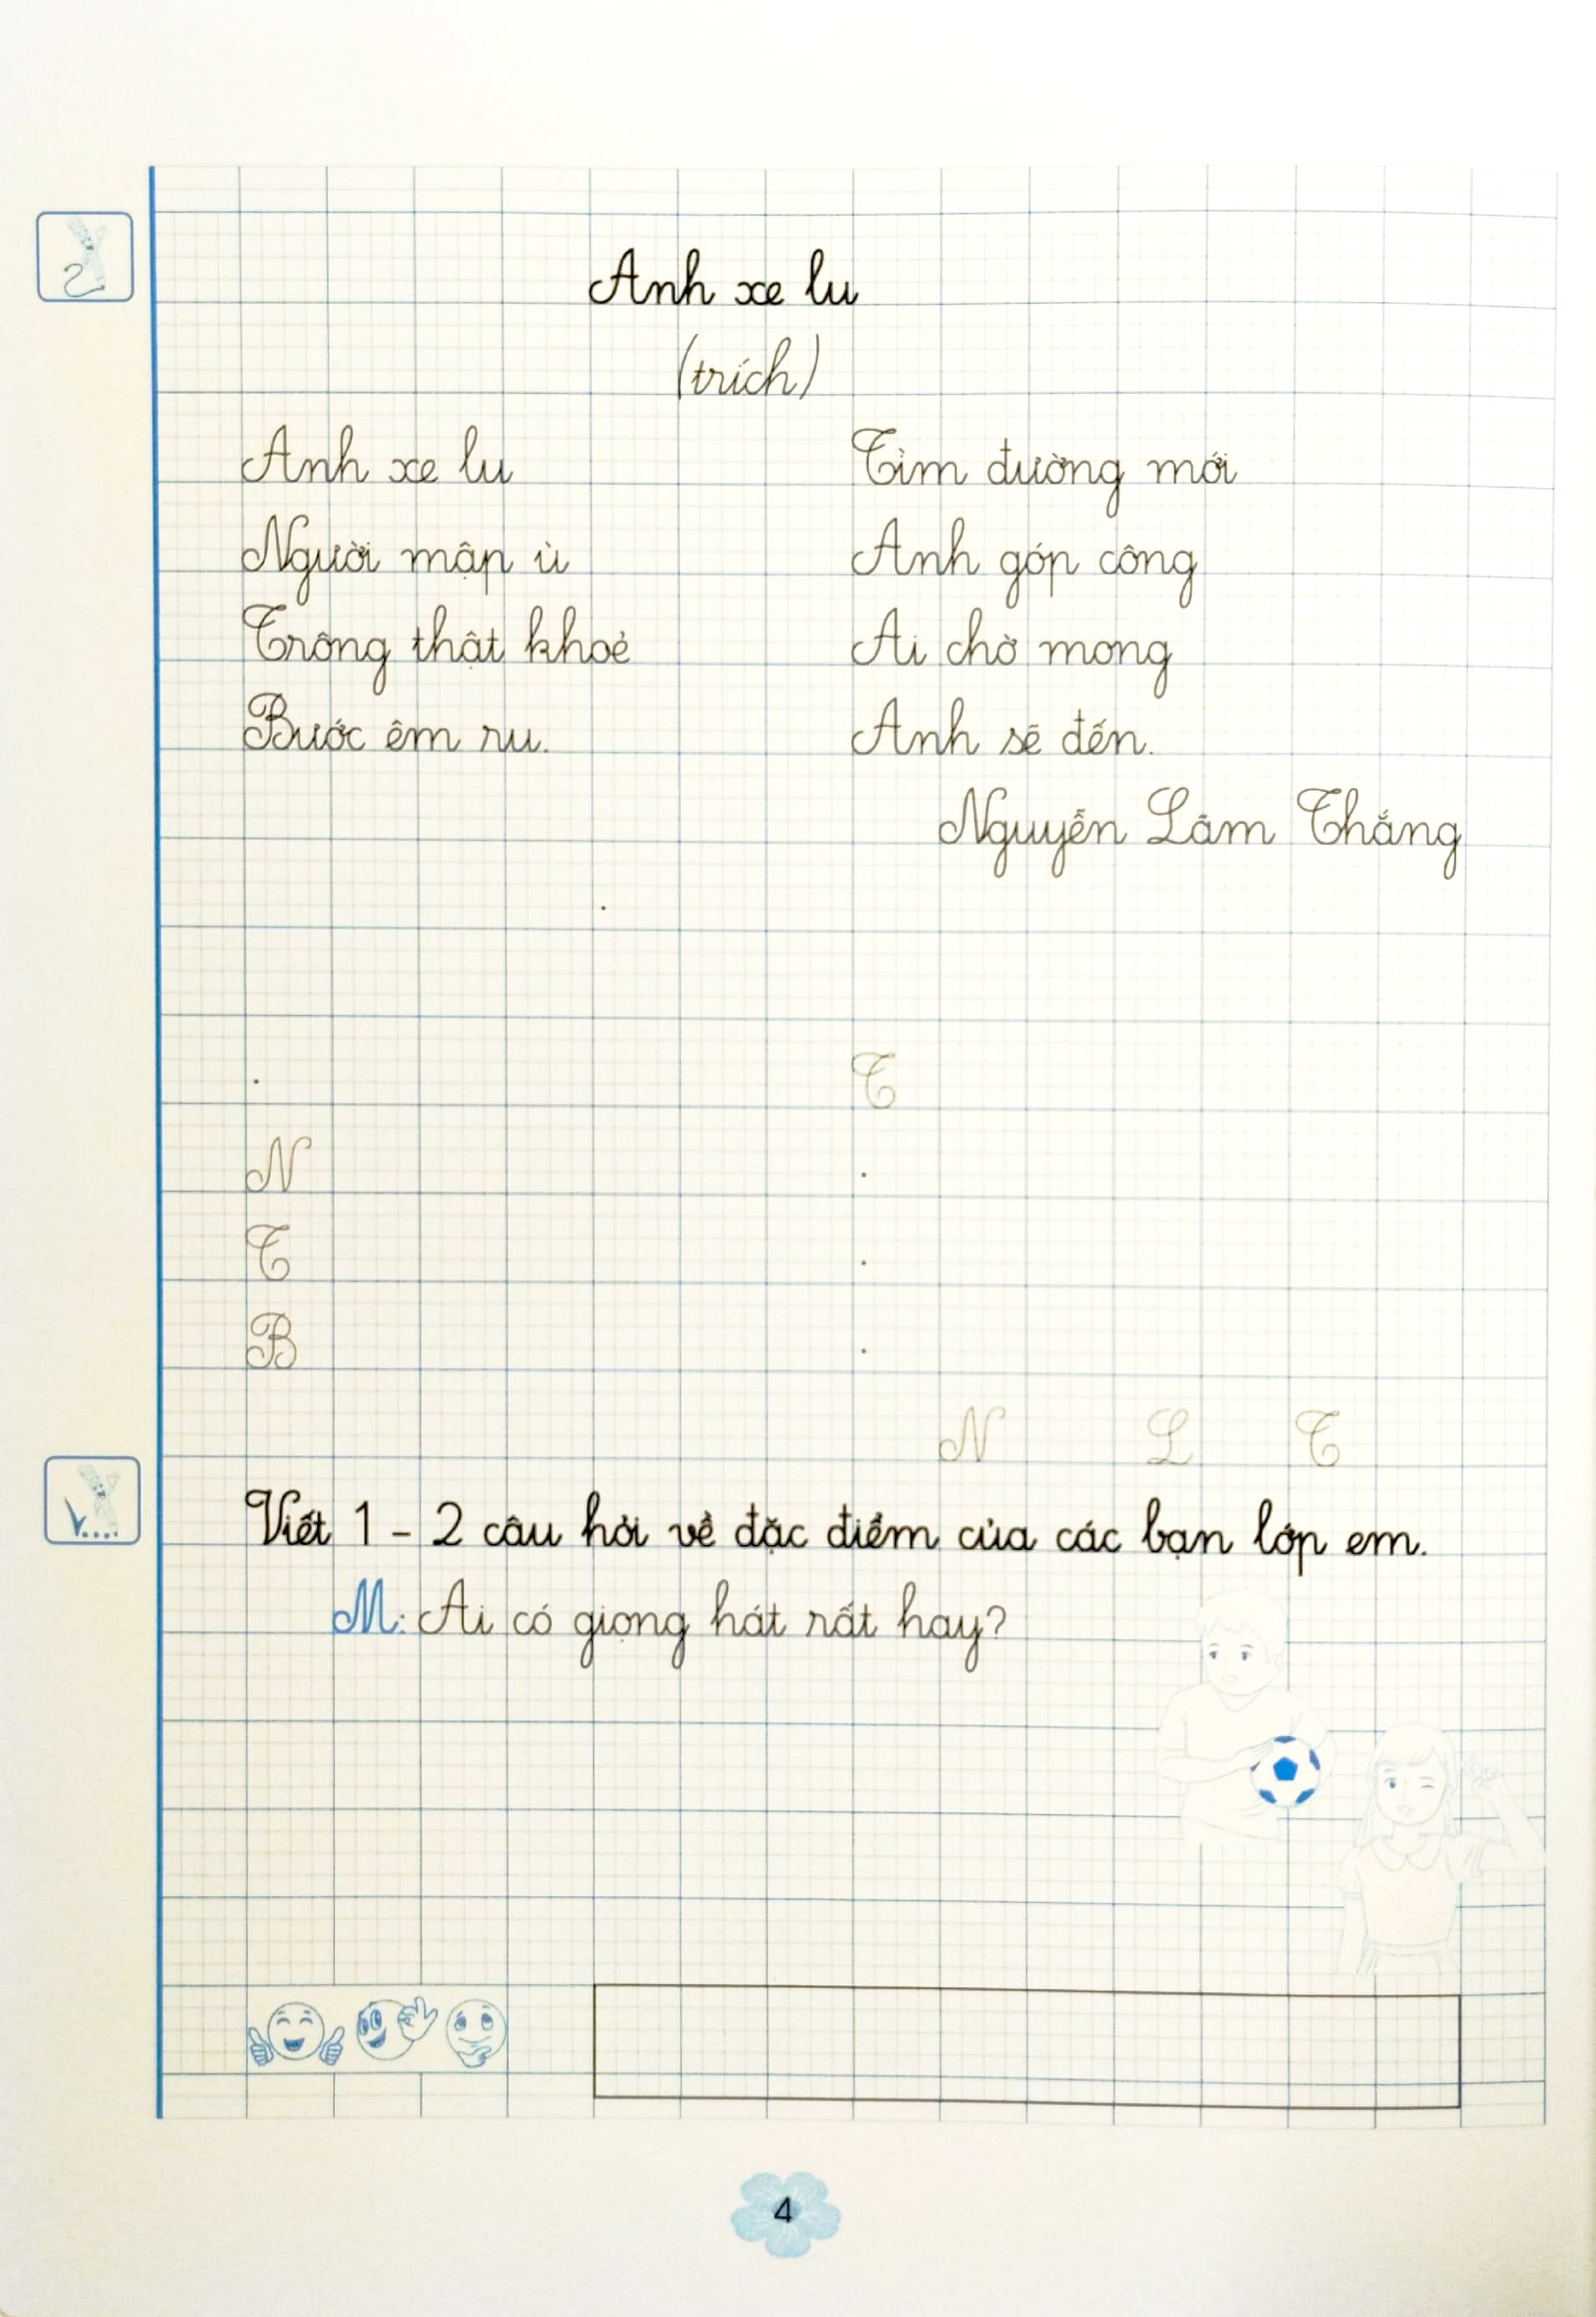 Anh xe lu
(trích)
Anh xe lu
Người mập ù
Trông thật khoẻ
Bước êm ru.
Tìm đường mới
Anh góp công
Ai chờ mong
Anh sẽ đến.
Nguyễn Lãm Thắng
.
T
N
T
B
N L T
Viết 1 - 2 câu hỏi về đặc điểm của các bạn lớp em.
M: Ai có giọng hát rất hay?
4